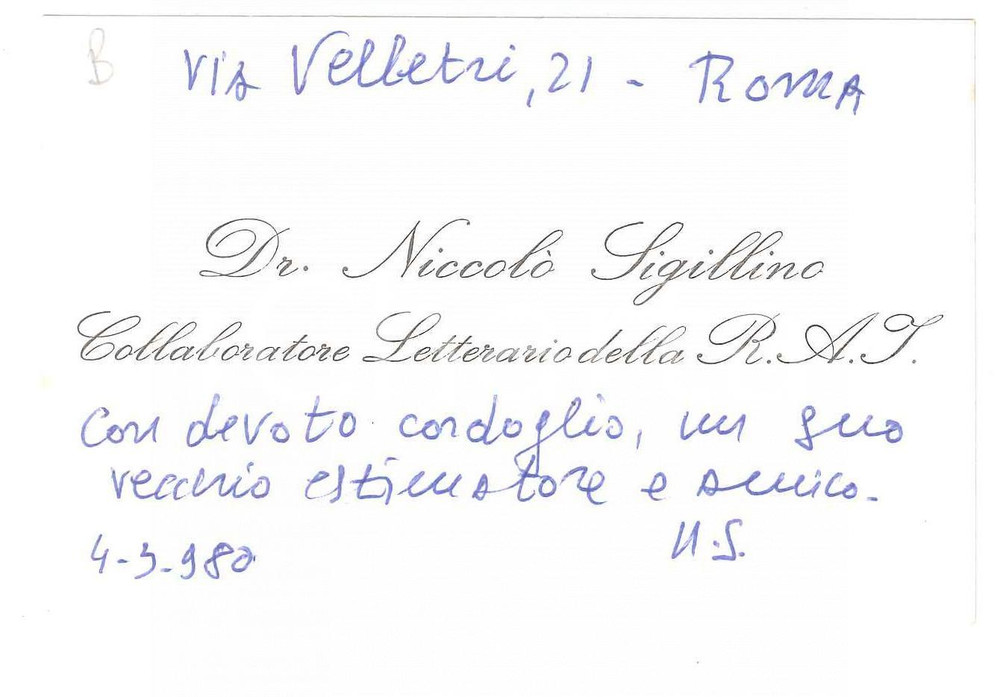 B
Via Velletri, 21 - ROMA
Dr. Niccolò Sigillino
Collaboratore Letterario della R. A. I.
Con devoto cordoglio, un suo
vecchio estimatore e amico.
N.S.
4-3-980